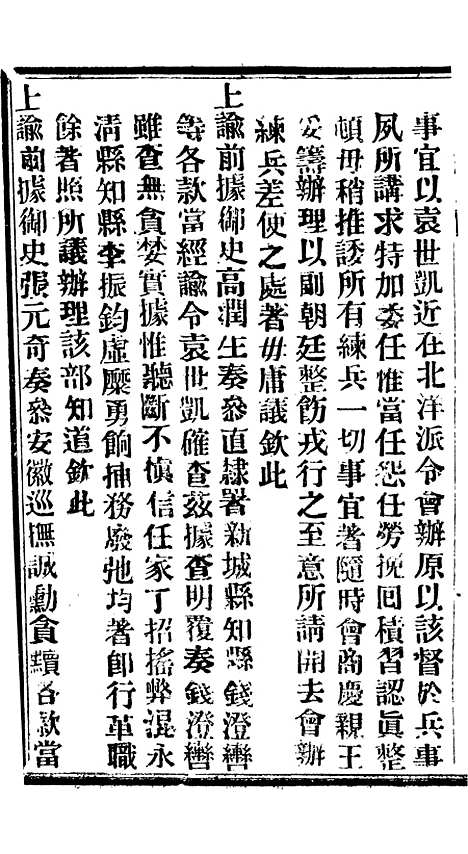 事宜以袁世凱近在北洋派令會辦原以該督於兵事
夙所講求特加委任惟當任怨任勞挽回積習認眞整
頓毋稍推諉所有練兵一切事宜著隨時會商慶親王
妥籌辦理以副朝廷整飭戎行之至意所請開去會辦
練兵差使之處著毋庸議欽此
上諭前據御史高潤生奏參直隸署新城縣知縣錢澄轡
等各款當經諭令袁世凱確查茲據查明覆奏錢澄轡
雖查無貪婪實據惟聽斷不愼信任家丁招搖弊混永
淸縣知縣李振鈞虛糜勇餉捕務廢弛均著卽行革職
餘著照所議辦理該部知道欽此
上諭前據御史張元奇奏參安徽巡撫誠勳貪黷各款當